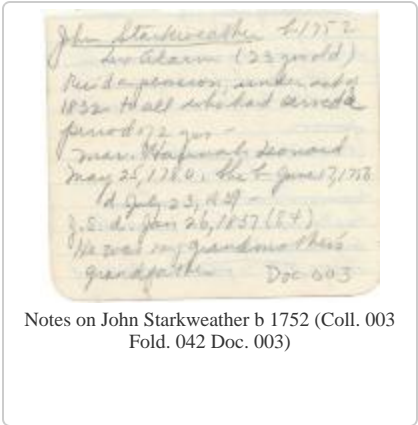 John Starkweather b 1752
Lex Alarm (23 yrs old)
Rec'd a pension, under act of
1832 to all who had served a
period of 2 yrs -
mar. Hannah Leonard
May 25, 1780. She b. June 17, 1758
d July 23,
J.S. d. Jan 26, 1837 (84)
He was my grandmother's
grandfather
Doc 003
Notes on John Starkweather b 1752 (Coll. 003
Fold. 042 Doc. 003)